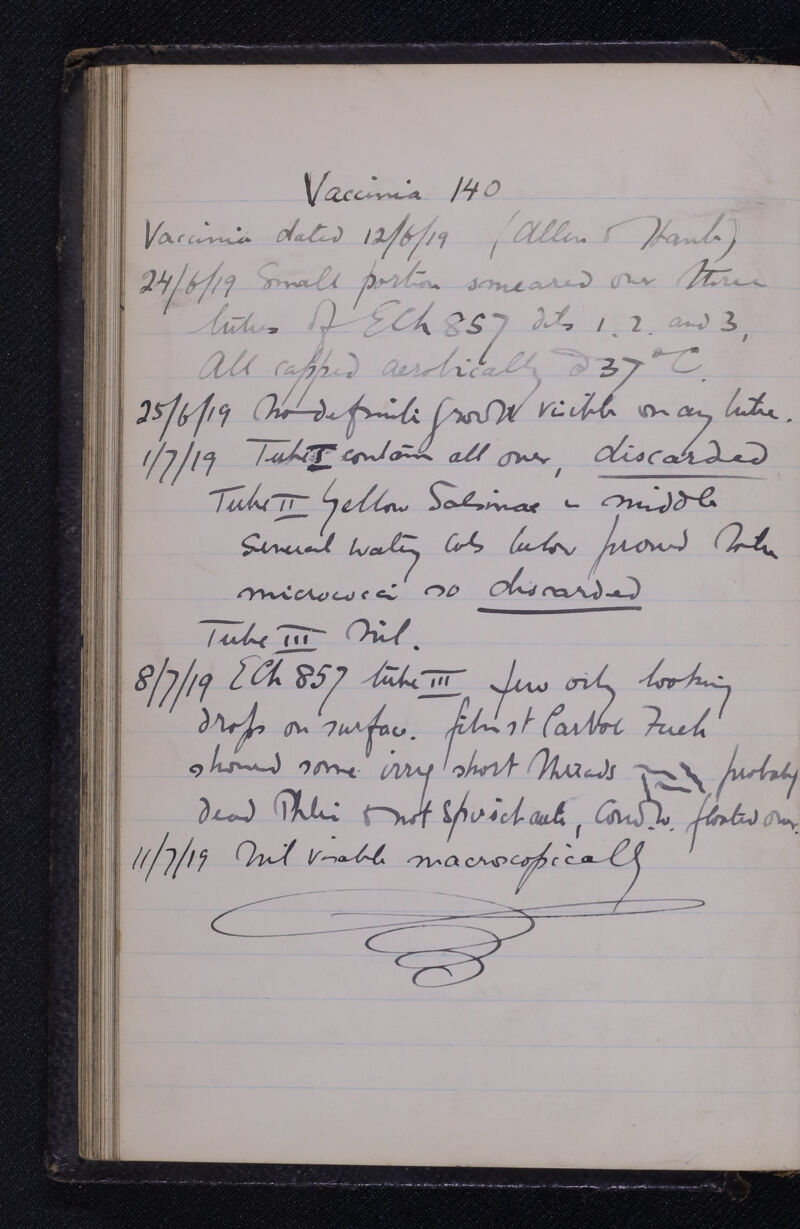 Vaccinia 140
Vaccinia dated 12/6/19 (Allen & Hanb)
24/6/19 Small portion smeared over three
tubes of ECh 857 1. 2. and 3,
All capped aerobically @ 37°C.
25/6/19 No definite growth visible on any tube.
1/7/19 Tube I contam all over, discarded
Tube II Yellow middle
Several watery cols below proved to be
micrococci so discarded
Tube III Nil.
8/7/19 ECh 857 tube III few oily looking
drops on surface. film st Carbol Fuch
showed some short threads probably
dead Phlei & not Spirochaete, Cond. W. floated over.
11/7/19 Nil visable macroscopically